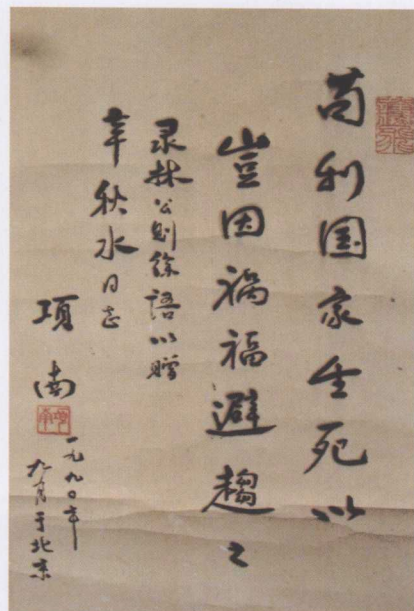 苟利国家生死以
豈因禍福避趨之
录林公则徐語以贈
辛秋水同志
項南
一九九〇年
九月于北京